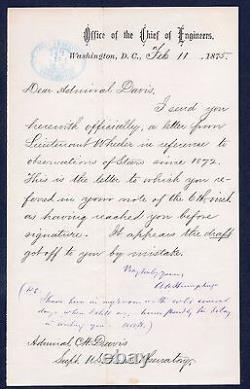 Office of the Chief of Engineers,
Washington, D. C., Feb 11, 1875.
Dear Admiral Davis,
I send you
herewith officially, a letter from
Lieutenant Wheeler in reference to
observations of Stars since 1872.
This is the letter to which you re-
ferred in your note of the 6th inst
as having reached you before
signature. It appears the draft
got off to you by mistake.
Very truly yours,
A A Humphreys
(P.S.
I have been in my room with cold several
days which will
in writing you. AAH)
Admiral C.H. Davis
Supt. U.S. Observatory.